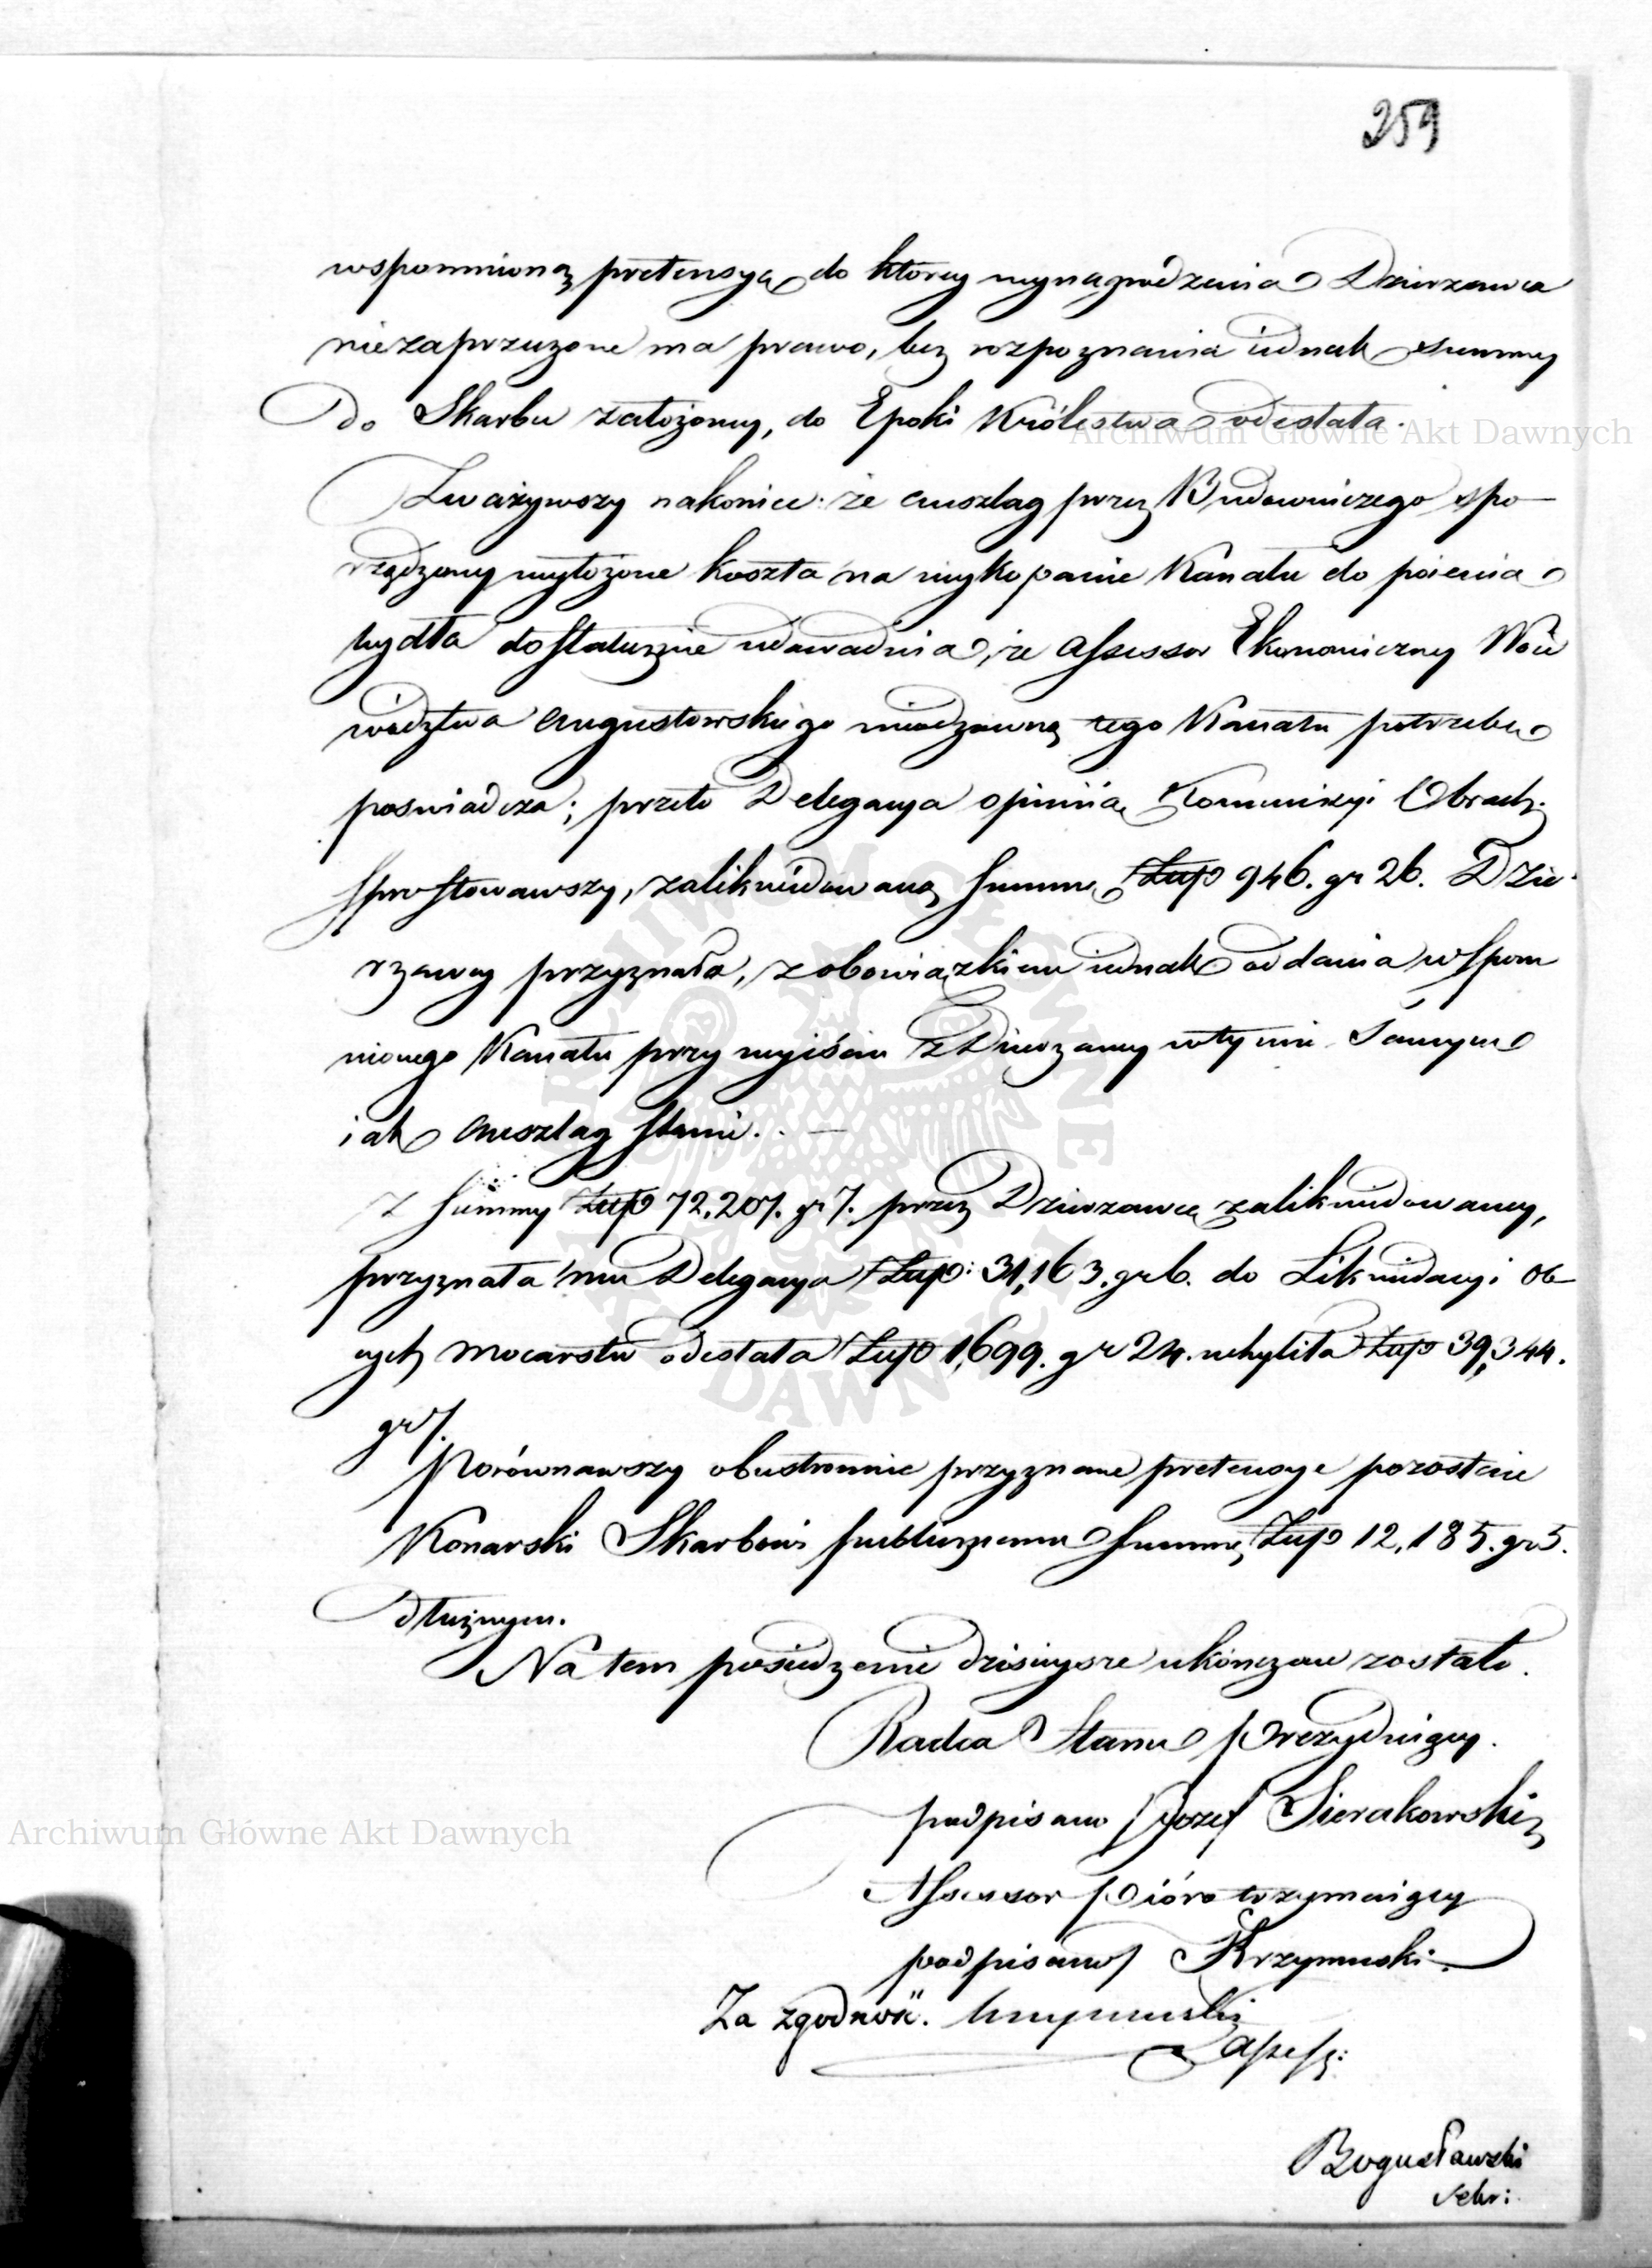 259
wspomnioną pretensyą do którey wynagrodzenia Dzierzawca
niezaprzeczone ma prawo, bez rozpoznania iednak summy
do Skarbu założoney, do Epoki Królestwa odesłała.
Zważywszy nakoniec że anszlag przez Budowniczego spo-
rządzony wyłożone koszta na wykopanie Kanału do poienia
bydła dostatecznie udowadnia, że Assessor Ekonomiczny Woie
wództwa Augustowskiego nieodzowną tego Kanału potrzebę
poswiadcza; przeto Delegacya opiniią Kommissyi Obrach.
sprostowawszy, zalikwidowaną summę Złłp 946. gr 26. Dzie-
rzawcy przyznała, z obowiązkiem iednak oddania wspom
nionego Kanału przy wyiściu z Dzierzawy w tymże samym
iak anszlag stanie. —
Z summy Złłp 72,207. gr 7. przez Dzierzawcę zalikwidowaney,
przyznała mu Delegacya Złłp: 31,163. gr 6. do Likwidacyi ob-
cych mocarstw odesłała Złłp 1,699. gr 24. uchyliła Złłp 39,344.
gr 7.
Porównawszy obustronnie przyznane pretensye pozostaie
Konarski Skarbowi publicznemu summę Złłp 12,185. gr 5.
dłużnym.
Na tem posiedzenie dzisieysze ukończone zostało.
Radca Stanu Prezyduiący.
podpisano Jozef Sierakowski
Assessor Pióro trzymaiący
podpisano Krzymuski.
Za zgodność. Krzymuski
Assess:
Bogusławski
Sekr:
Archiwum Główne Akt Dawnych
Archiwum Główne Akt Dawnych
ARCHIWUM GŁÓWNE AKT DAWNYCH